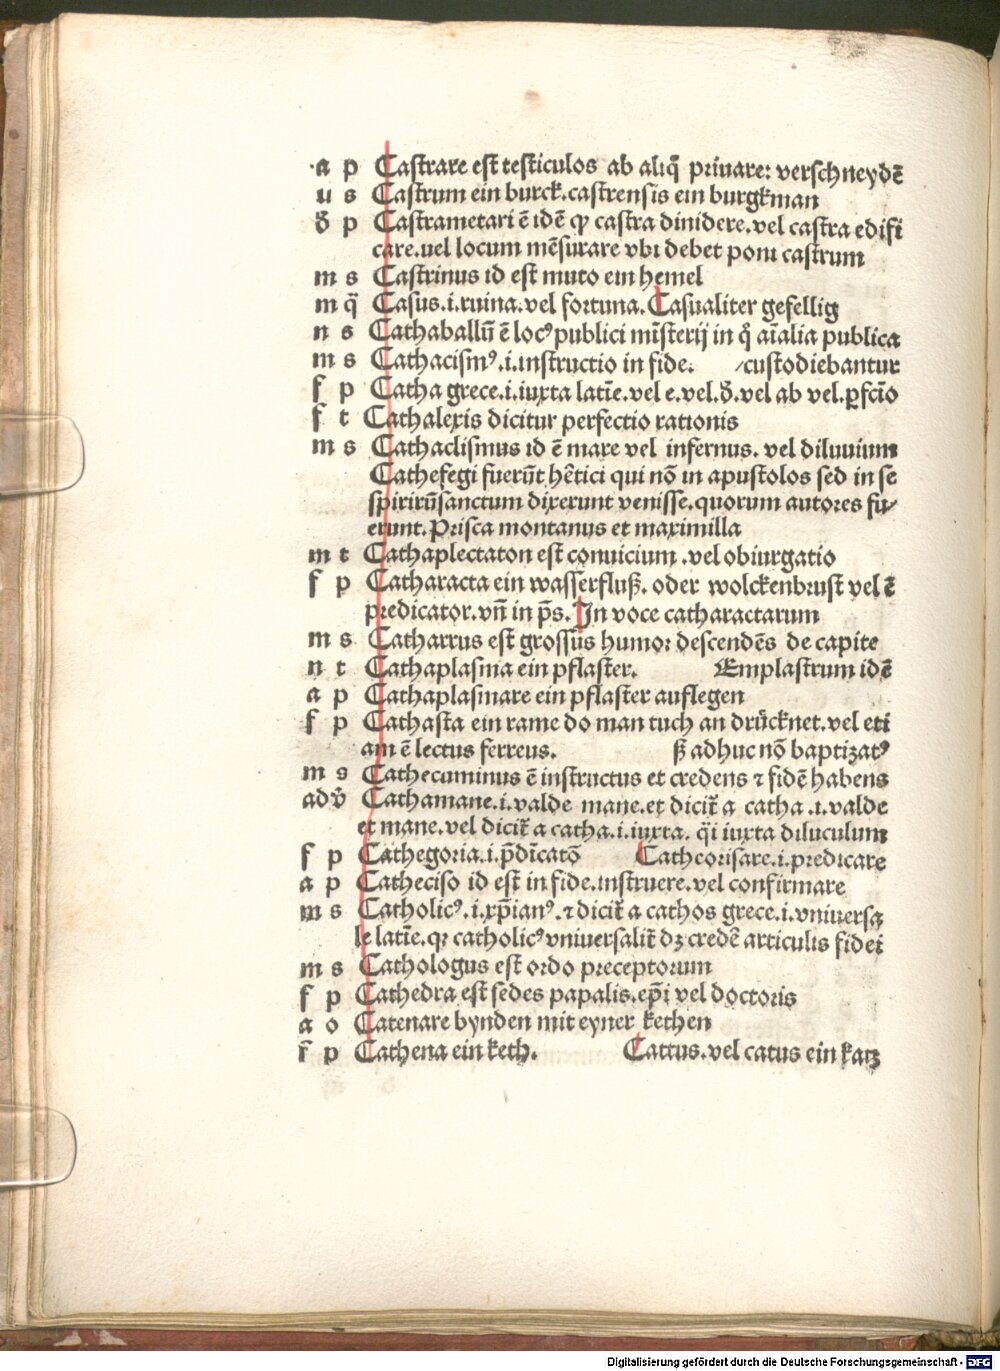 a p Castrare est testiculos ab aliq̄ priuare: verschneydē
u s Castrum ein burck. castrensis ein burgkman
đ p Castrametari ē idē ꝙ castra diuidere. vel castra edifi
care. uel locum mēsurare vbi debet poni castrum
m s Castrinus id est muto ein hemel
m q̄ Casus .i. ruina. vel fortuna. Casualiter gefellig
n s Cathaballū ē locꝰ publici misterij in q̊ aīalia publica
m s Cathacismꝰ .i. instructio in fide. /custodiebantur
f p Catha grece .i. iuxta latīe. vel e. vel. đ. vel ab vel. ꝑfcīo
f t Cathalexis dicitur perfectio rationis
m s Cathaclismus id ē mare vel infernus. vel diluuium
Cathefegi fuerūt hētici qui nō in apustolos sed in se
spirirūsanctum dixerunt venisse. quorum autores fu/
erunt. Prisca montanus et maximilla
m t Cathaplectaton est conuicium .vel obiurgatio
f p Catharacta ein wasserfluß. oder wolckenbrust vel ē
predicator. vn̄ in p̄s. In voce catharactarum
m s Catharrus est grossus humor descendēs de capite
n t Cathaplasma ein pflaster. Emplastrum idē
a p Cathaplasmare ein pflaster auflegen
f p Cathasta ein rame do man tuch an drücknet. vel eti
am ē lectus ferreus. ß adhuc nō baptizatꝰ
m s Cathecuminus ē instructus et credens ⁊ fidē habens
adv̄ Cathamane .i. valde mane. et dicit̄ a catha .i. valde
et mane. vel dicit̄ a catha .i. iuxta. q̄i iuxta diluculum
f p Cathegoria .i. p̄dicatō Catheorisare .i. predicare
a p Catheciso id est in fide. instruere. vel confirmare
m s Catholicꝰ .i. xp̄ianꝰ. ⁊ dicit̄ a cathos grece .i. vniuersa
le latīe. qꝛ catholicꝰ vniuersalit̄ dꝫ credē articulis fidei
m s Cathologus est ordo preceptorum
f p Cathedra est sedes papalis. ep̄i vel doctoris
a o Catenare bynden mit eyner kethen
f̄ p Cathena ein keth. Cattus. vel catus ein katz
Digitalisierung gefördert durch die Deutsche Forschungsgemeinschaft - DFG